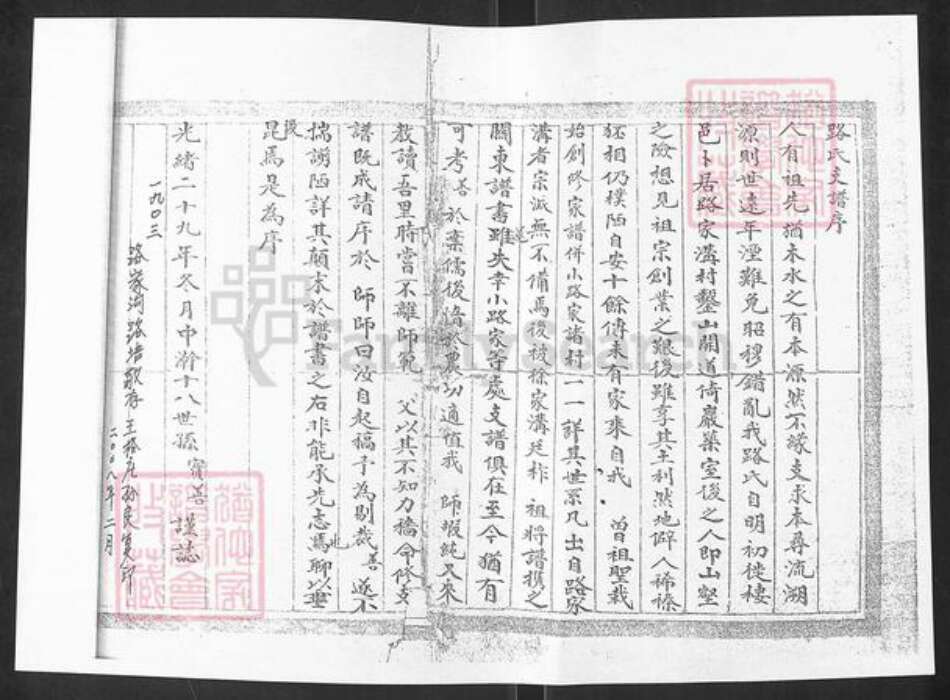 路氏支譜序
人有祖先猶木水之有本源然不緣支求本尋流溯
源則世遠年湮難免昭穆錯亂我路氏自明初徙棲
邑卜居路家溝村鑿山開道倚巖築室後之人即山壑
之險想見祖宗創業之艱後雖享其土利然地僻人稀榛
狉相仍樸陋自安十餘傳未有家乘自我 曾祖聖載
始創修家譜併小路家諸村一一詳其世系凡出自路家
溝者宗派無不備焉後被徐家溝廷柞 祖將譜攜之
關東譜書雖失幸小路家等處支譜俱在至今猶有
可考善於棄儒後惰於農功適值我 師 純又來
教讀吾里時嘗不離師範 父以其不知力穡命修支
譜既成請序於 師師曰汝自起稿予為剔裁善遂不
揣謭陋詳其顛末於譜書之右非能承先志也焉聊以垂
後昆焉是為序
光緒二十九年冬月中澣十八世孫 寶善 謹誌
一九〇三
路家溝路培 存 孫民复印
二〇〇八年二月
FamilySearch